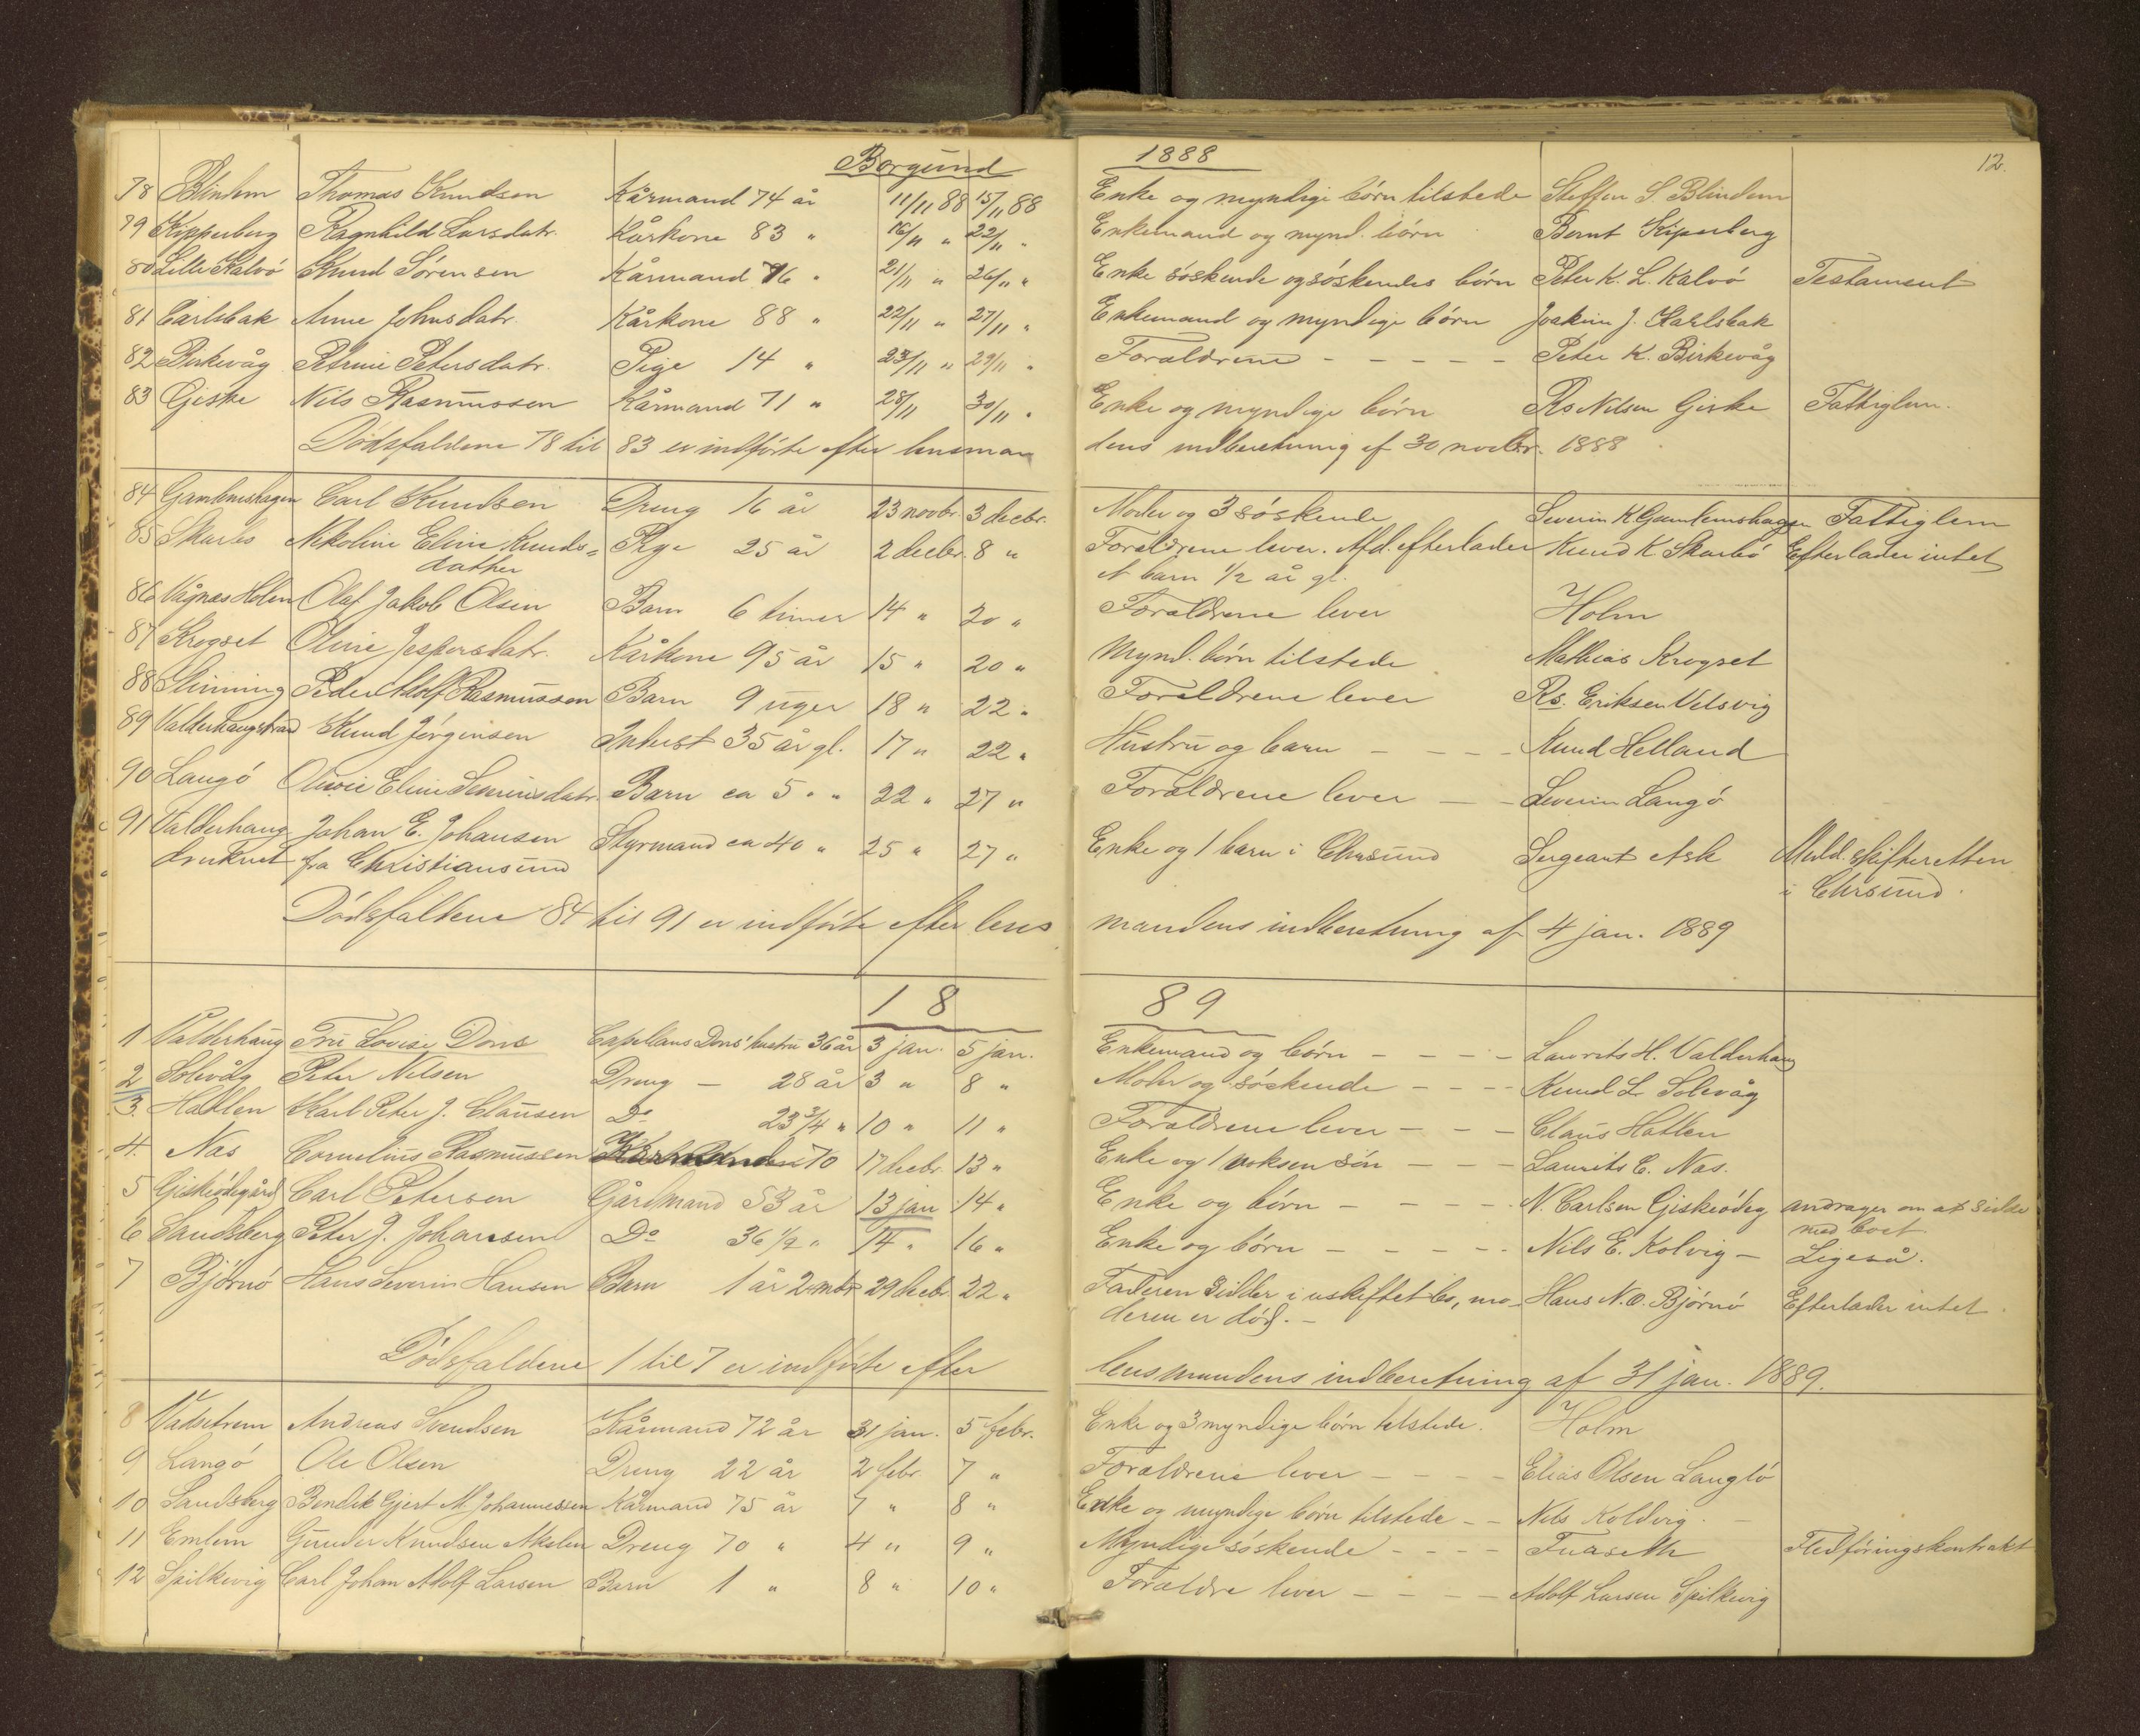 Borgund 1888 12.
78 Blinhm Thomas Knudsen Kårmand 74 år 11/11 88 15/11 88 Enke og myndige børn tilstede Steffen S Blindem
79 Kipperberg Ragnhild Larsdatr. Kårkone 83 " 16/11 " 22/11 " Enkemand og mynd. børn Bernt Kiperberg
80 Lille Kalvö Knud Sörensen Kårmand 76 " 21/11 " 26/11 " Enke söskende og söskendes börn Peter K. L. Kalvö Testament
81 Carlsbak Anne Johnsdatr. Kårkone 88 " 22/11 " 27/11 " Enkemand og myndige börn Joakim J. Karlsbak
82 Birkevåg Petrine Petersdatr. Pige 14 " 23/11 " 29/11 " Forældrene - - - - - Peter K. Birkevåg
83 Giske Nils Rasmussen Kårmand 71 " 28/11 30/11 " Enke og myndige börn Rs Nilsen Giske Fattiglem.
Dödsfaldene 78 til 83 er indförte efter lensman dens indberetning af 30 novbr. 1888
84 Gamlemshagen Carl Knudsen Dreng 16 år 23 novbr. 3 decbr. Moder og 3 söskende Severin K Gamlemshagen Fattiglem
85 Skarbö Nikoline Eline Knuds= Pige 25 år 2 decbr. 8 " Forældrene lever. Afd. efterlader Knud K Skarbö Efterlader intet
datter et barn 1/2 år gl.
86 Vågnæs Holen Olaf Jakob Olsen Barn 6 timer 14 " 20 " Forældrene lever Holm
87 Krogset Oline Jespersdatr. Kårkone 95 år 15 " 20 " Mynd. börn tilstede Mathias Krogset
88 Slinning Peder Adolf Rasmussen Barn 9 uger 18 " 22 " Forældrene lever Rs. Eriksen Velsvig
89 Valderhaugstrand Knud Jörgensen Inderst 35 år gl. 17 " 22 " Hustru og barn - - - Knud Helland
90 Langö Eline Severinsdatr. Barn ca 5 " " 22 " 27 " Forældrene lever - - Severin Langö
91 Valderhaug Johan E. Johansen Styrmand ca 40 " 25 " 27 " Enke og 1 barn i Chrsund Sergeant Ask Meld. skifteretten
druknet fra Christiansund i Chrsund.
Dödsfaldene 84 til 91 er indförte efter lens mandens indberetning af 4 jan. 1889
18 89
1 Valderhaug Fru Lovise Dons Capellans Dons' hustru 36 år 3 jan. 5 jan. Enkemand og börn - - - - Laurits H. Valderhaug
2 Solevåg Peter Nilsen Dreng - 28 år 3 " 8 " Moder og söskende - - - - Knud L. Solevåg
3. Hatlen Karl Peter J. Clausen Do 23 3/4 " 10 " 11 " Forældrene lever - - - Claus Hatlen
4. Næs Cornelius Rasmussen 70 17 decbr. 13 " Enke og 1 voksen sön - - - Laurits C. Næs.
5 Giskeödegård Carl Petersen Gårdmand 53 år 13 jan 14 " Enke og börn - - - - - N. Carlsen Giskeödeg andrager om at sidde
med boet
6 Sandsberg Peter J. Johansen Do 36 1/2 " 14 " 16 " Enke og börn - - - - - Nils E. Kolvig - Ligeså.
7 Björnö Hans Severin Hansen Barn 1 år 2 mdr 29 decbr. 22 " Faderen sidder i uskiftet bo, mo- Hans N. O. Björnö Efterlader intet.
deren er död. -
Dödsfaldene 1 til 7 er indförte efter lensmandens indberetning af 31 jan. 1889.
8 Vadstrem Andreas Svendsen Kårmand 72 år 31 jan. 5 febr. Enke og 3 myndige börn tilstede. Holm
9 Langö Ole Olsen Dreng 22 år 2 febr. 7 " Forældrene lever - - - - Elias Olsen Langlö
10 Sandsberg Bendik Gjert M. Johannessen Kårmand 75 år 7 " 8 " Enke og myndige börn tilstede - - Nils Koldvig. -
11 Emlem Gunder Knudsen Dreng 70 " 4 " 9 " Myndige söskende - - - - Fledföringskontrakt
12 Spilkevig Carl Johan Adolf Larsen Barn 1 " 8 " 10 " Forældre lever - - - - Adolf Larsen Spilkevig